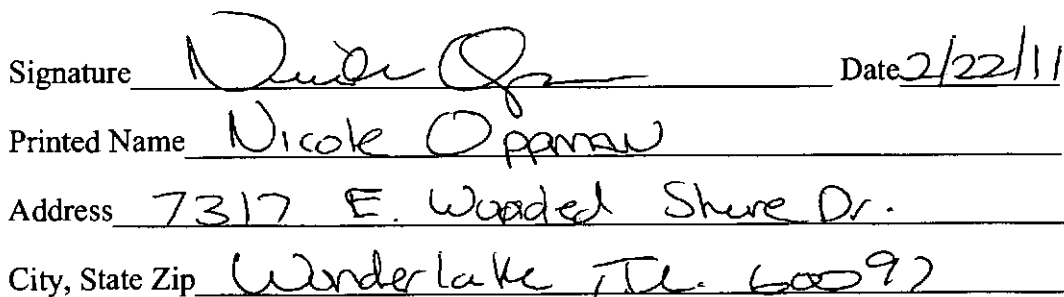 Signature Nicole Op Date 2/22/11
Printed Name Nicole Oppman
Address 7317 E. Wooded Shore Dr.
City, State Zip Wonderlake, IL. 60097